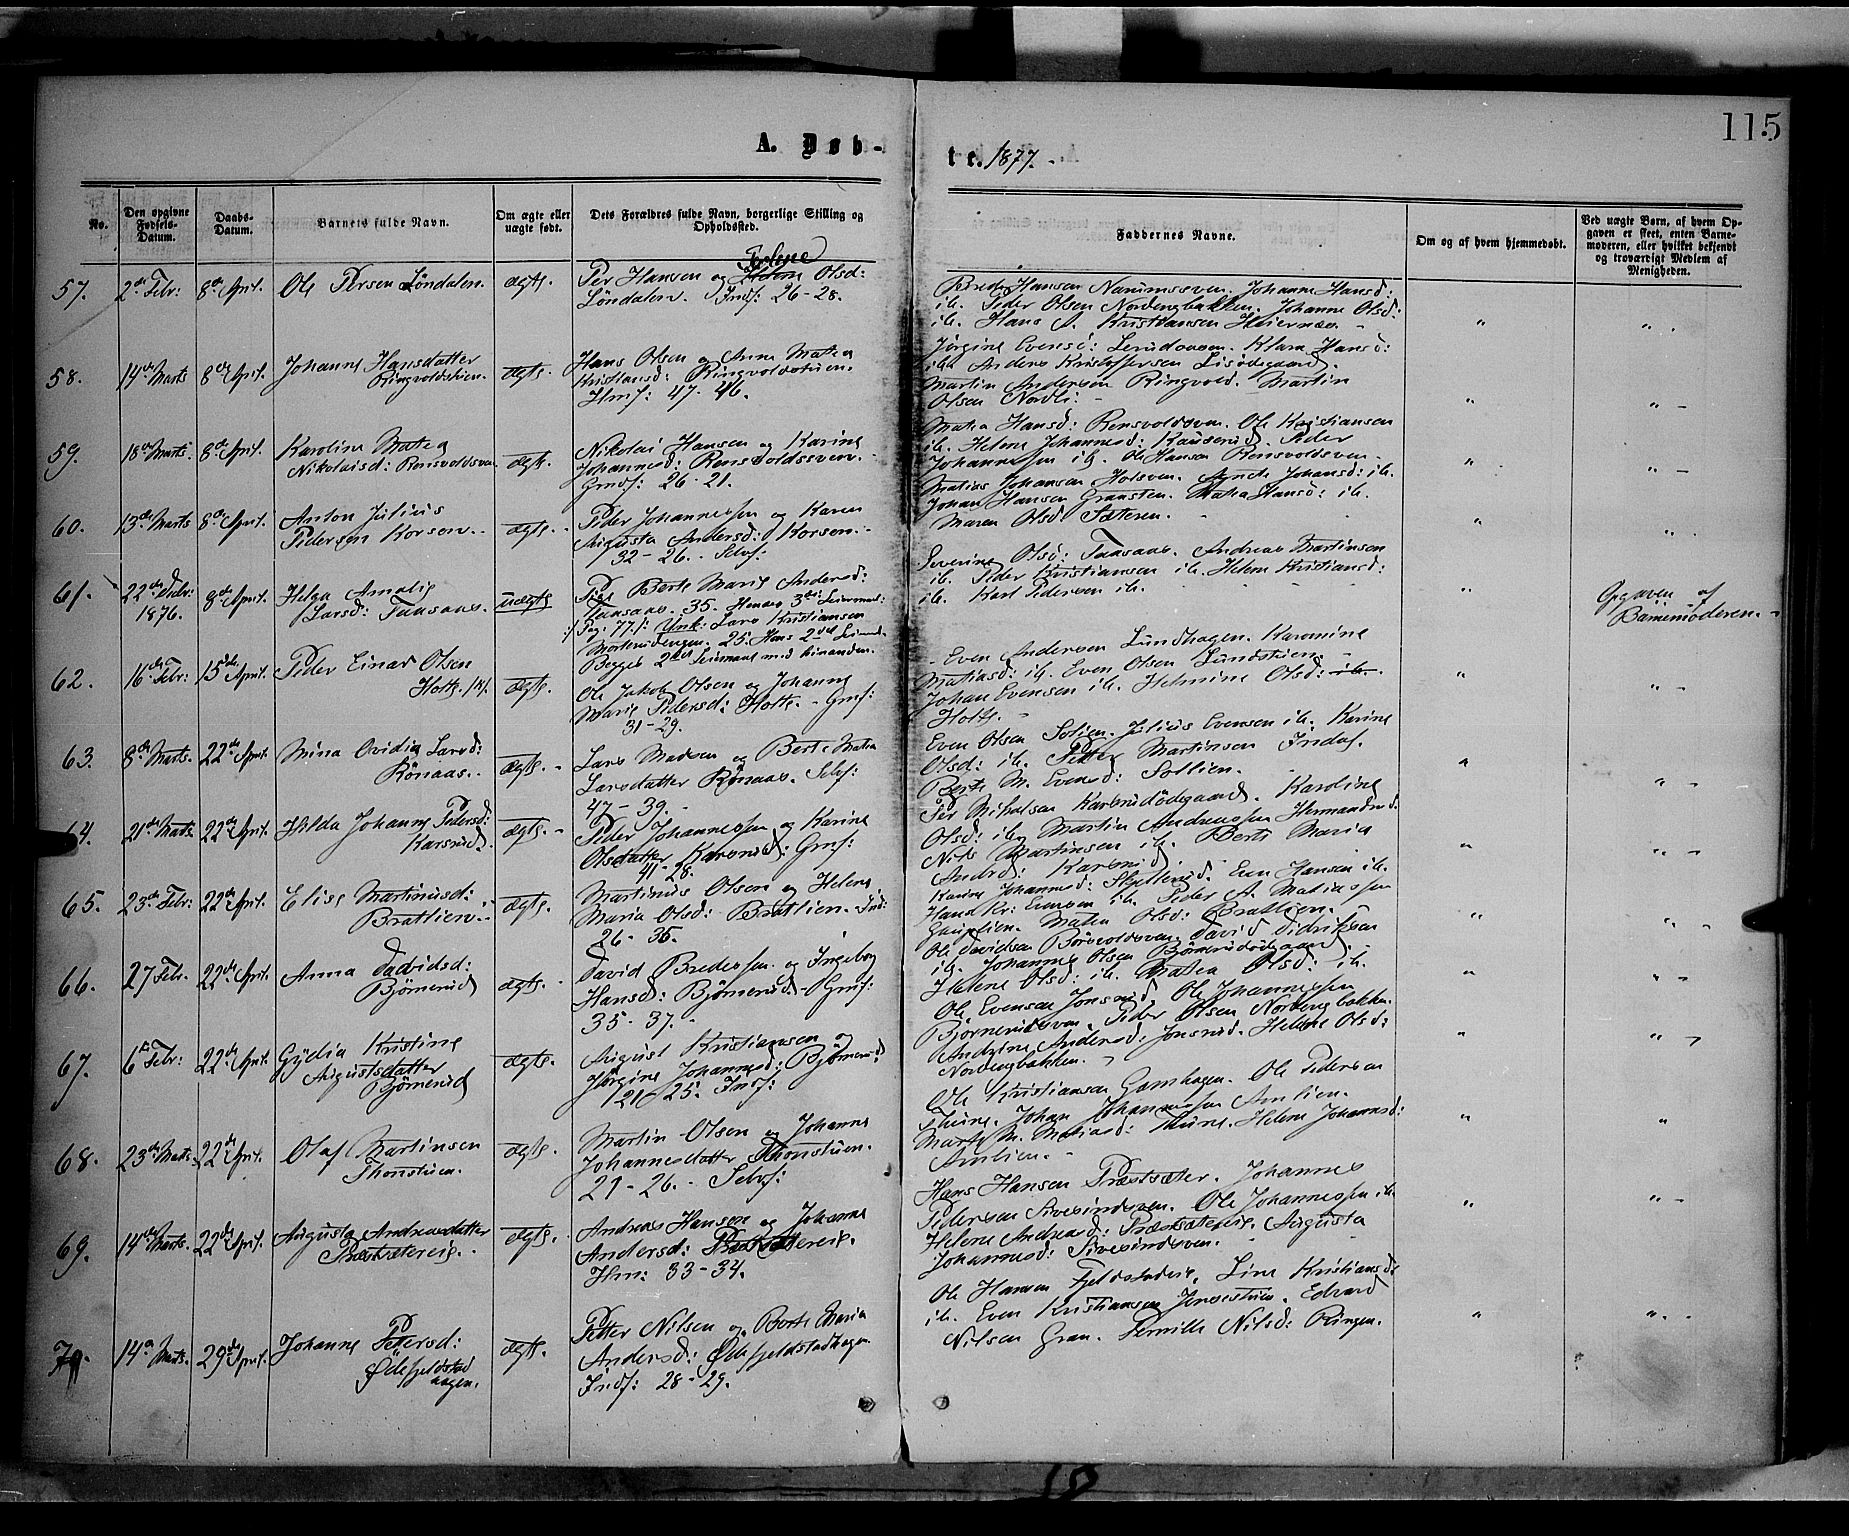 115
A. Døb-
te. 1877.
No.
Den opgivne Fødsels-Datum.
Daabs-Datum.
Barnets fulde Navn.
Om ægte eller uægte født.
Dets Forældres fulde Navn, borgerlige Stilling og Opholdssted.
Faddernes Navne.
Om og af hvem hjemmedøbt.
Ved uægte Børn, af hvem Opgaven er skeet, enten Barnemoderen, eller hvilket bekjendt og troværdigt Medlem af Menigheden.
57. 2de Febr: 8de April. Ole Persen Löndalen. ægte.
Per Hansen og Olsd:
Löndalen. Indf: 26-28.
Hansen Narumseven. Johanne Hansd:
ib. Peder Olsen Nordengbakken. Johanne Olsd:
ib. Hans A. Kristiansen
58. 14de Marts 8de April. Johanne Hansdatter
Ringvoldstuen. ægte.
Hans Olsen og Anne Mathea
Kristiansd: Ringvoldstuen.
Hmf: 47-46.
Jörgine Evensd: Klara Hansd:
ib. Anders Kristoffersen
Martin Andersen Ringvold. Martin
Olsen Nordli.
59. 18de Marts 8de April. Karoline Mathea
Nikolaisd: Rensvoldsven ægte.
Nikolai Hansen og Karine
Johannesd: Rensvoldssven.
Gmdf: 26-21.
Mathea Hansd: Rensvoldsven. Ole Kristiansen
ib. Helene Johannesd: Kauserud. Peder
Johannessen ib. Ole Hansen Rensvoldsven.
60. 13de Marts 8de April. Anton Julius
Pedersen Korsen. ægte.
Peder Johannessen og Karen
Augusta Andersd: Korsen.
32-26. Selvf:
Mathias Johansen Johansd: ib.
Johan Hansen Gransten. Mathea Hansd: ib.
Maren Olsd: Sæteren.
61. 22de Febr: 1876. 8de April. Helga Amalie
Larsd: Taasaas. uægte
Pige Berte Marie Andersd:
Taasaas. 35. Hendes 3die Leiermaal:
Pag: 77.): Unk: Lars Kristiansen
25. Hans 2det Leierm:
Begges 2det Leiermaal med hinanden.
Severine Olsd: Taasaas. Andreas Martinsen
ib. Peder Kristiansen ib. Helene Kristiansd:
ib. Karl Pedersen ib.
Opgaven af
Barnemoderen.
62. 16de Febr: 15de April. Peder Einar Olsen
Holte. ægte.
Ole Jakob Olsen og Johanne
Marie Pedersd: Holte. Gmf:
31-29.
Even Andersen Lundhagen. Karonine
Mathiasd: ib. Even Olsen Lundstuen.
Johan Evensen ib. Helmine Olsd: ib.
Holte.
63. 8de Marts. 22de April. Mina Ovidia Larsd:
Rönaas. ægte.
Lars Madsen og Berte Mathea
Larsdatter Rönaas. Selvf:
47-39.
Even Olsen Solien. Julius Evensen ib. Karine
Olsd: ib. Petter Martinsen Indal.
Berte M. Evensd: Sollien.
64. 21de Marts. 22de April. Hilda Johanne Pedersd:
Karsrud. ægte.
Peder Johannessen og Karine
Olsdatter Karsrud: Gmf:
41-28.
Per Mikalsen Karsrudödegaard. Karoline
Olsd: ib. Martin Andreassen
Nils Martinsen ib. Berte Maria
Andrd: Karsrud.
65. 23de Febr: 22de April. Elise Martinusd:
Brattlien. ægte.
Martinus Olsen og Helene
Maria Olsd: Brattlien. Ind:
26-35.
Karine Johannesd: Even Hansen ib.
Hans Kr: Evensen ib. Peder A. Mathiassen
Mathea Olsd: Brattlien.
66. 27 Febr. 22de April. Anna Davidsd:
Bjørnerud ægte.
David Bredessen og Ingeborg
Hansd: Bjørnerud. Gmf:
35-37.
Ole Davidsen David Didriksen
ib. Johannes Olsen Bjørnerudødegaard.
Helene Olsd: ib. Mathea Olsd: ib.
67. 6te Febr: 22de April. Gydia Kristine
Augustsdatter
Bjørnerud ægte.
August Kristiansen og
Jørgine Johannesd: Bjørnerud
21-25. Indf:
Ole Evensen Jonsrud. Ole Johannessen
Bjørnerudsven. Peder Olsen Nordengbakken.
Andrine Andersd: Jonsrud. Helene Olsd:
Nordengbakken.
68. 23de Marts. 22de April. Olaf Martinsen
Thonstuen. ægte.
Martin Olsen og Johanne
Johannesdatter Thonstuen.
21-26. Selvf:
Ole Kristiansen Gamhagen. Ole Pedersen
Thune. Johan Johannessen Amlien.
Marte M. Mathiasd: Thune. Helene Johannesd:
Amlien.
69. 14de Marts. 22de April. Augusta Andreasdatter
Præstsætereie. ægte.
Andreas Hansen og Johanne
Andersd: Præstsætereie.
Hm: 33-34.
Hans Hansen Præstsæter. Johannes
Pedersen Sivesindsven. Ole Johannessen ib.
Helene Andreasd: Præstsætereie. Augusta
Johannesd: Sivesindsven.
70. 14de Marts. 29de April. Johanne Pettersd:
Ødefjeldstad
hagen. ægte.
Petter Nilsen og Berte Maria
Andersd: Ødefjeldstadhagen
Indf: 28-29.
Ole Hansen Fjeldstadeie. Line Kristiansd:
ib. Even Kristiansen Jensestuen. Edvard
Nilsen Gran. Pernille Nilsd: Ringen.
10